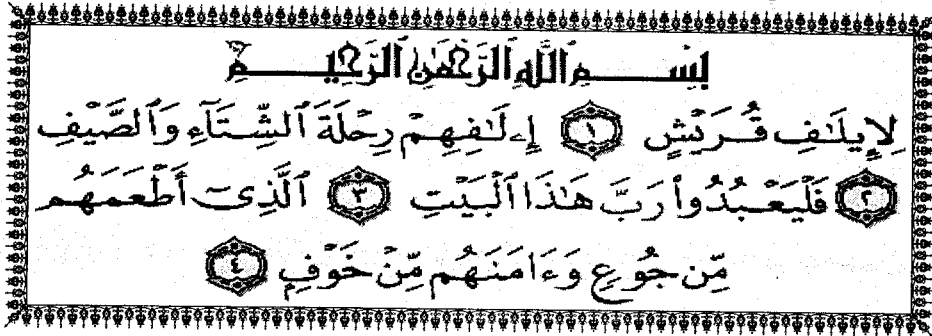 بِسْمِ ٱللَّهِ ٱلرَّحْمَٰنِ ٱلرَّحِيمِ
لِإِيلَٰفِ قُرَيْشٍ ١ إِۦلَٰفِهِمْ رِحْلَةَ ٱلشِّتَآءِ وَٱلصَّيْفِ
٢ فَلْيَعْبُدُوا۟ رَبَّ هَٰذَا ٱلْبَيْتِ ٣ ٱلَّذِىٓ أَطْعَمَهُم
مِّن جُوعٍ وَءَامَنَهُم مِّنْ خَوْفٍ ٤